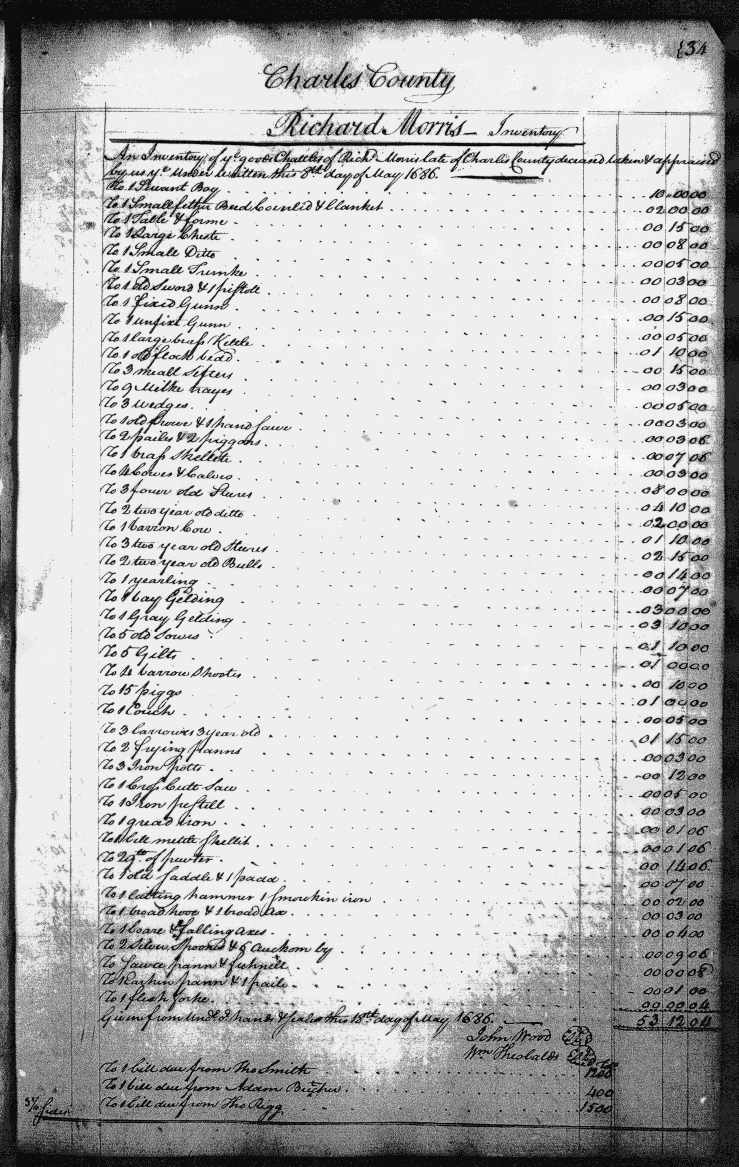 134
Charles County
Richard Morris - Inventory
An Inventory of ye goods Chattles of Richd Morris late of Charles County deceased taken & appraised
by us ye Under written this 8th day of May 1686.
To 1 Servant Boy 10 00 00
To 1 Small fether Bed Coverlid & blanket 02 00 00
To 1 Table & forme 00 15 00
To 1 Large Cheste 00 08 00
To 1 Small Ditto 00 05 00
To 1 Small Trunke 00 03 00
To 1 old Sword & 1 pistoll 00 08 00
To 1 fixed Gunn 00 15 00
To 1 unfixt Gunn 00 05 00
To 1 large brass Kettle 01 10 00
To 1 old flock bedd 00 15 00
To 3 meall Sifters 00 03 00
To 9 Milke trayes 00 05 00
To 3 wedges 00 03 00
To 1 old frowe & 1 hand sawe 00 03 06
To 2 pailes & 2 piggons 00 07 06
To 1 brass Skellete 00 03 00
To 4 Cowes & Calves 08 00 00
To 3 fower old Steres 04 10 00
To 2 two year old ditto 02 00 00
To 1 barron Cow 01 10 00
To 3 two year old Steeres 02 15 00
To 2 two year old Bulls 00 14 00
To 1 yearling 00 07 00
To 1 bay Gelding 03 00 00
To 1 Gray Gelding 03 10 00
To 5 old Sowes 01 10 00
To 5 Gilts 01 00 00
To 4 barrow Shootes 00 10 00
To 15 piggs 01 00 00
To 1 Couch 00 05 00
To 3 barrowes 3 year old 01 15 00
To 2 frying panns 00 03 00
To 3 Iron potts 00 12 00
To 1 Cross Cutt Saw 00 05 00
To 1 Iron pestill 00 03 00
To 1 gread iron 00 01 06
To 1 bell mettle Skellit 00 01 06
To 29 of pewter 00 14 06
To 1 old saddle & 1 padd 00 07 00
To 1 lathing hammer 1 Smowkin iron 00 02 00
To 1 broad hooe & 1 broad Ax 00 03 00
To 1 & falling Axes 00 04 00
To 2 Silver Spoones & 6 by 00 09 06
To Sawce pann & 00 00 08
To pann & 1 paile 00 01 00
To 1 flesh forke 00 00 04
Given from Under or hands & seales this 18th day of May 1686. 53 12 04
John Wood Seal
Wm Theobalds Seal
To 1 bill due from Tho Smith 1200
To 1 bill due from Adam 400
To 1 bill due from Tho Rigg 1500